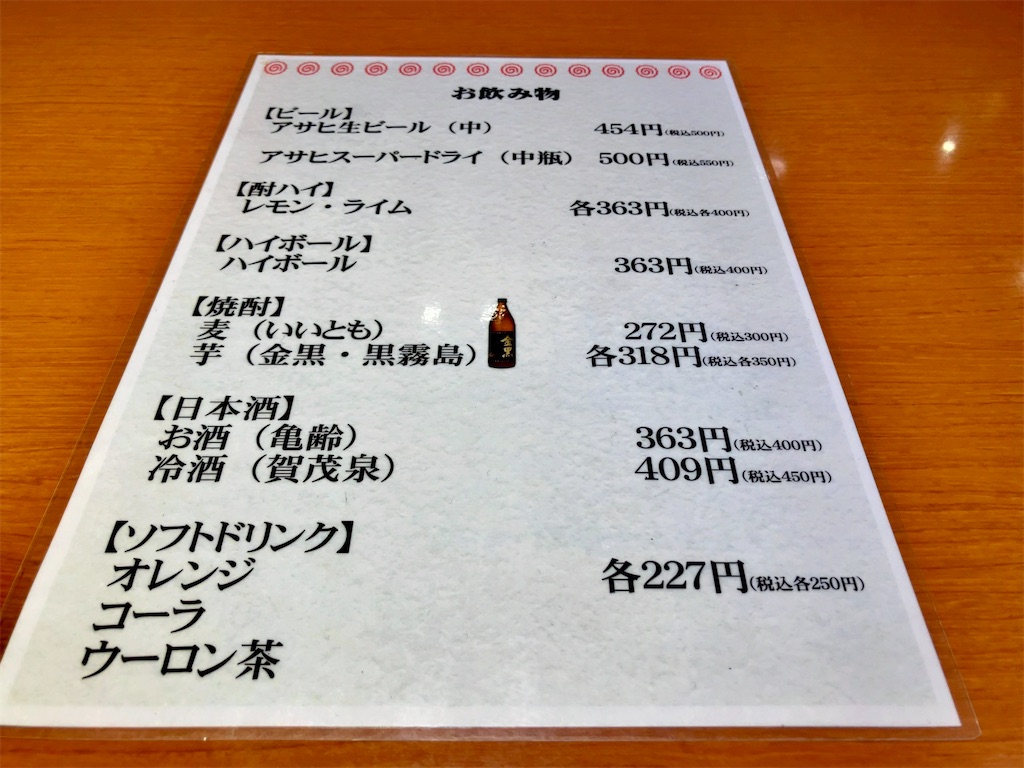 お飲み物
【ビール】
アサヒ生ビール（中） 454円(税込500円)
アサヒスーパードライ（中瓶） 500円(税込550円)
【酎ハイ】
レモン・ライム 各363円(税込各400円)
【ハイボール】
ハイボール 363円(税込400円)
【焼酎】
麦（いいとも） 272円(税込300円)
芋（金黒・黒霧島） 各318円(税込各350円)
金黒
【日本酒】
お酒（亀齢） 363円(税込400円)
冷酒（賀茂泉） 409円(税込450円)
【ソフトドリンク】
オレンジ 各227円(税込各250円)
コーラ
ウーロン茶